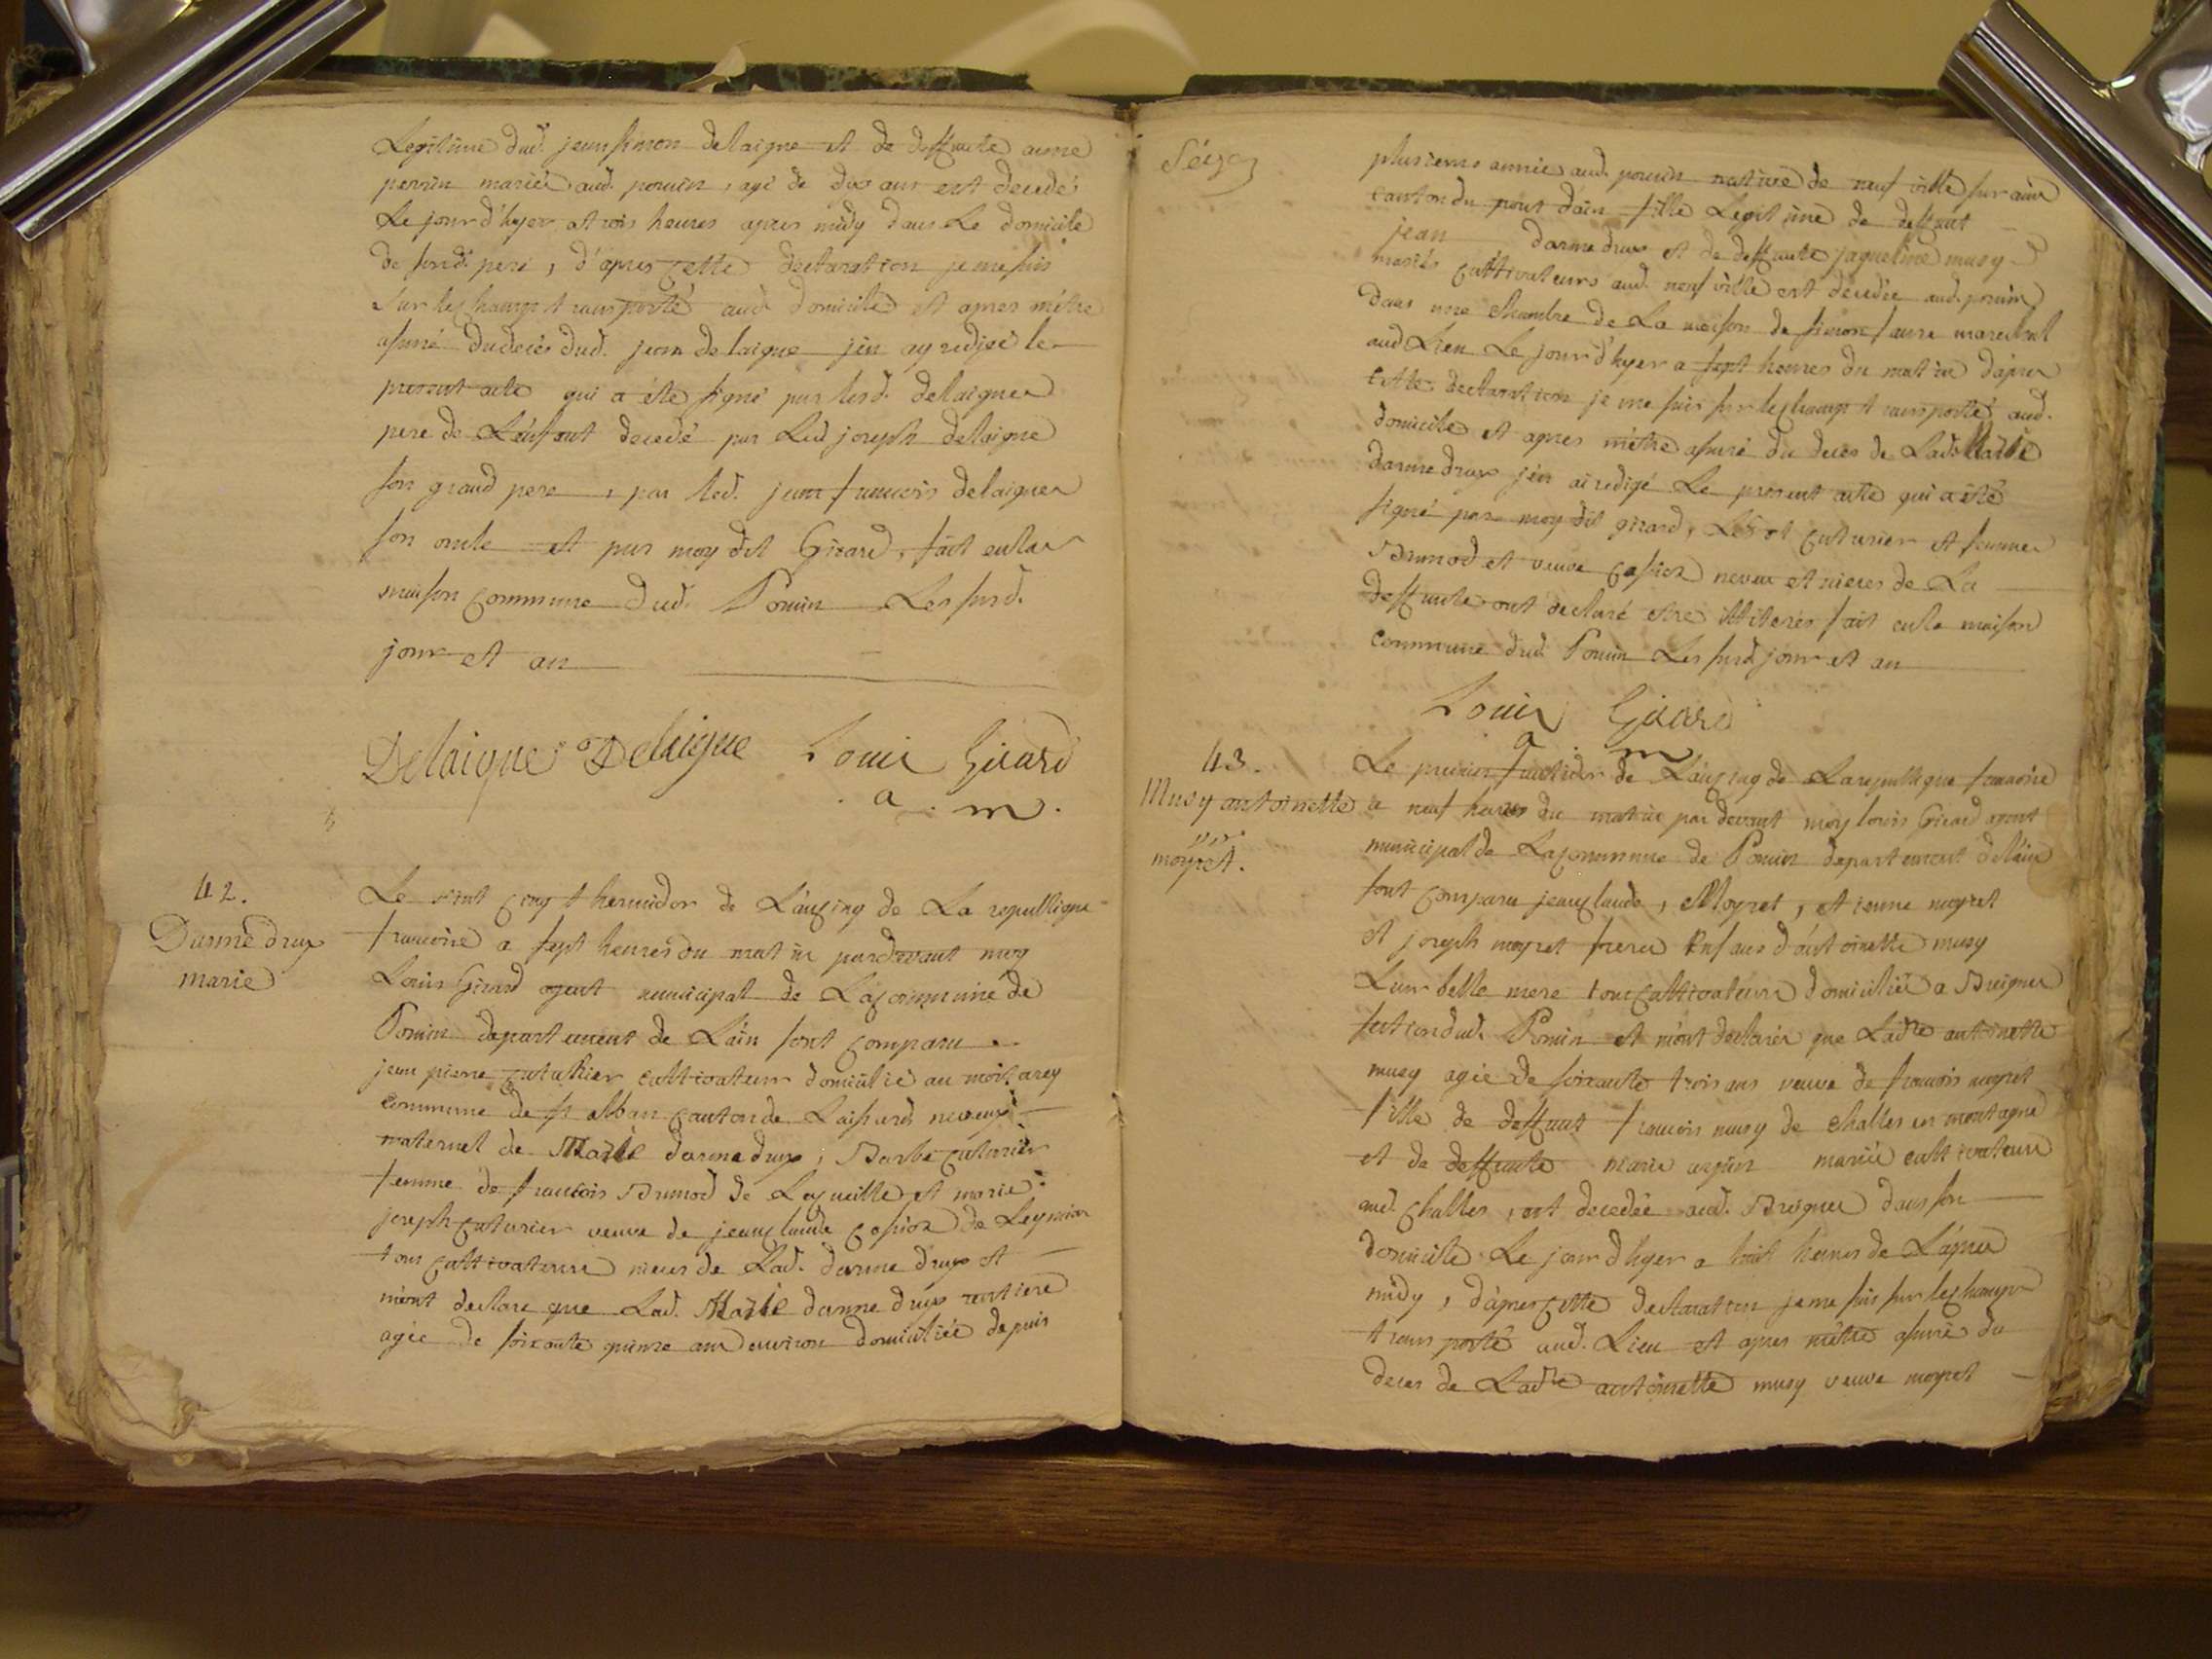 Legitime dud. jean simon delaigue et de deffunte anne
perrin mariés aud. poncin, agé de dix ans est decedé
Le jour d'hyer a trois heures apres midy dans Le domicile
de sond. pere, d'apres cette declaration je me suis
sur le champ transporté aud domicile et apres m'être
assuré du decès dud. jean delaigue j'en ay redigé le
present acte qui a été signé par lesd. delaigue
pere de L'enfant decedé par Led joseph delaigue
son grand pere, par led. jean francois delaigue
son oncle et par moy dit Girard, fait en la
maison commune dud. Poncin Les susd.
jour et an
Delaigue Delaigue Louis Girard
a. m.
42.
Darmedrux
marie
Le vint cinq thermidor de L'an cinq de La republique
francoise a sept heures du matin pardevant moy
Louis Girard agent municipal de La commune de
Poncin departement de L'ain sont comparu
jean pierre cultivateur domicilié au
commune de st alban canton de neveux
maternel de Marie darmedrux, Barbe cuturier
femme de francois Brunod de et marie
joseph cuturier veuve de jean claude de Leyssior
tous cultivateurs nieces de Lad. darmedrux et
m'ont declare que Lad. Marie darmedrux rentiere
agée de soixante quinze ans environ domiciliée depuis
plusieurs année aud. poncin native de neuf ville sur ain
canton du pont d'ain fille Legitime de deffunt
jean darmedrux et de deffunte jaqueline musy
mariés cultivateurs aud. neuf ville est décedée aud. poncin
dans une chambre de La maison de simon faure marechal
aud Lieu Le jour d'hyer a sept heures du matin d'apres
cette declaration je me suis sur le champ transporté aud.
domicile et apres m'être assuré du deces de Lad. Marie
darmedrux j'en ai redigé Le present acte qui a été
signé par moy dit girard, Led. et cuturier et femme
Brunod et veuve neveux et nieces de La
deffunte ont declaré être illiterés fait en la maison
commune dud Poncin Les susd jour et an
Louis Girard
a m
43.
Musy antoinette
ve.
moyret.
Le premier fructidor de L'an cinq de La republique francoise
a neuf heures du matin par devant moy louis Girard agent
municipal de La commune de Poncin departement de L'ain
sont comparu jean claude, Moyret, etienne moyret
et joseph moyret freres Enfans d'antoinette musy
Leur belle mere tous cultivateurs domiciliés a Breignes
section dud. Poncin et m'ont declarés que Ladte antoinette
musy agée de soixante trois ans veuve de francois moyret
fille de deffunt francois musy de challes en montagne
et de deffunte marie mariés cultivateurs
aud. challes, est decedée aud. Breignes dans son
domicile Le jour d'hyer a huit heures de L'apres
midy, d'apres cette declaration je me suis sur le champ
transporté aud. Lieu et apres m'être assuré du
deces de Ladte antoinette musy veuve moyret